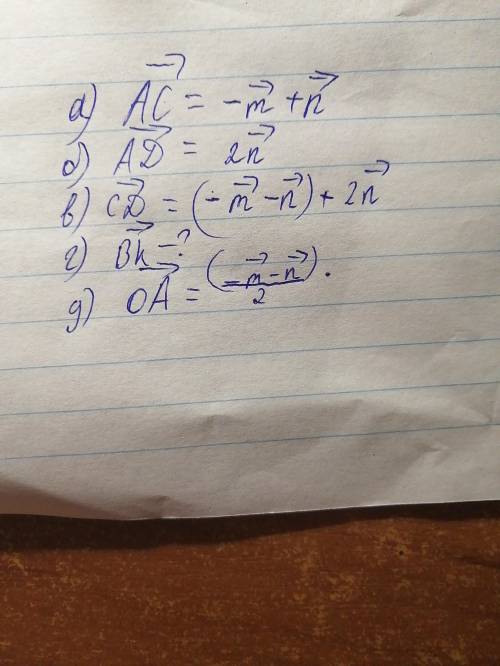 а) AC⃗ = -m⃗ + n⃗
б) AD⃗ = 2n⃗
в) CD⃗ = (-m⃗ - n⃗) + 2n⃗
г) BK⃗ - ?
д) OA⃗ = (-m⃗ - n⃗)/2.